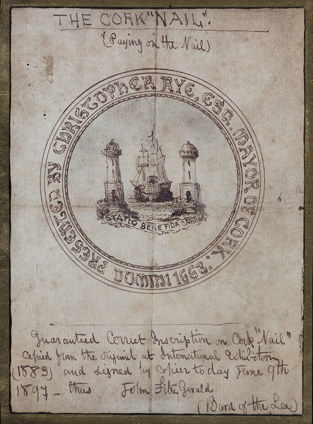 THE CORK "NAIL".
(Paying on the Nail)
PRESENTED BY CHRISTOPHER RYE, ESQ., MAYOR OF CORK.
DOMINI 1663.
STATIO BENE FIDA
Guarantied Correct Inscription on Cork "Nail"
Copied from the original at International Exhibition
(1883) and signed by Copier today June 9th
1897 – thus John Fitz Gerald
(Bard of the Lee)